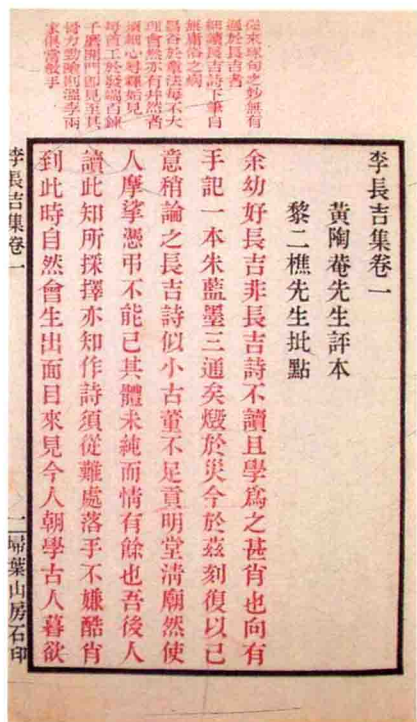 從來琢句之妙無有
過於長吉者
細讀長吉詩下筆自
無庸俗之病
昌谷於章法每不大
理會然亦有井然者
須細心尋繹始見
每首工於發端百鍊
千磨開門即見至其
骨力勁險則溫李兩
家俱當歛手
李長吉集卷一
黃陶菴先生評本
黎二樵先生批點
余幼好長吉非長吉詩不讀且學爲之甚肖也向有
手記一本朱藍墨三通矣燬於災今於茲刻復以己
意稍論之長吉詩似小古董不足貢明堂清廟然使
人摩挲憑弔不能已其體未純而情有餘也吾後人
讀此知所採擇亦知作詩須從難處落手不嫌酷肖
到此時自然會生出面目來見今人朝學古人暮欲
李長吉集卷一 一 埽葉山房石印